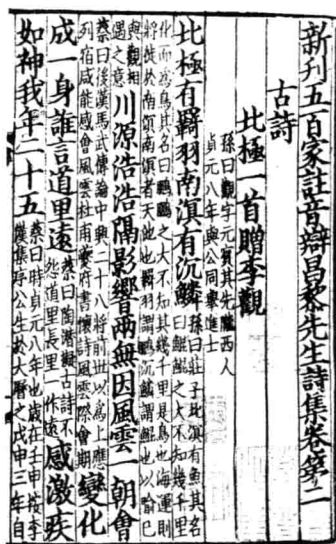 新刊五百家註音辯昌黎先生詩集卷第二
古詩
北極一首贈李觀
孫曰觀字元賓其先隴西人
貞元八年與公同舉進士
北極有羇羽南溟有沉鱗
孫曰莊子北溟有魚其名
曰鯤鯤之大不知其幾千里
化而為鳥其名曰鵬鵬之大不知其幾千里是鳥也海運則
將徙於南溟南溟者天池也羇羽謂鵬沉鱗謂鯤也以喻己
與觀相
遇之意
川源浩浩隔影響兩無因風雲一朝會
蔡曰後漢馬武傳論中興二十八將前世以為上應
列宿咸能感會風雲杜甫夔府書懷詩風雲際會期
變化
成一身誰言道里遠
蔡曰陶潜擬古詩不
怨道里長里一作遠
感激疾
如神我年二十五
蔡曰時貞元八年也歲在壬申按李
漢集序公生於大曆之戊申三年自